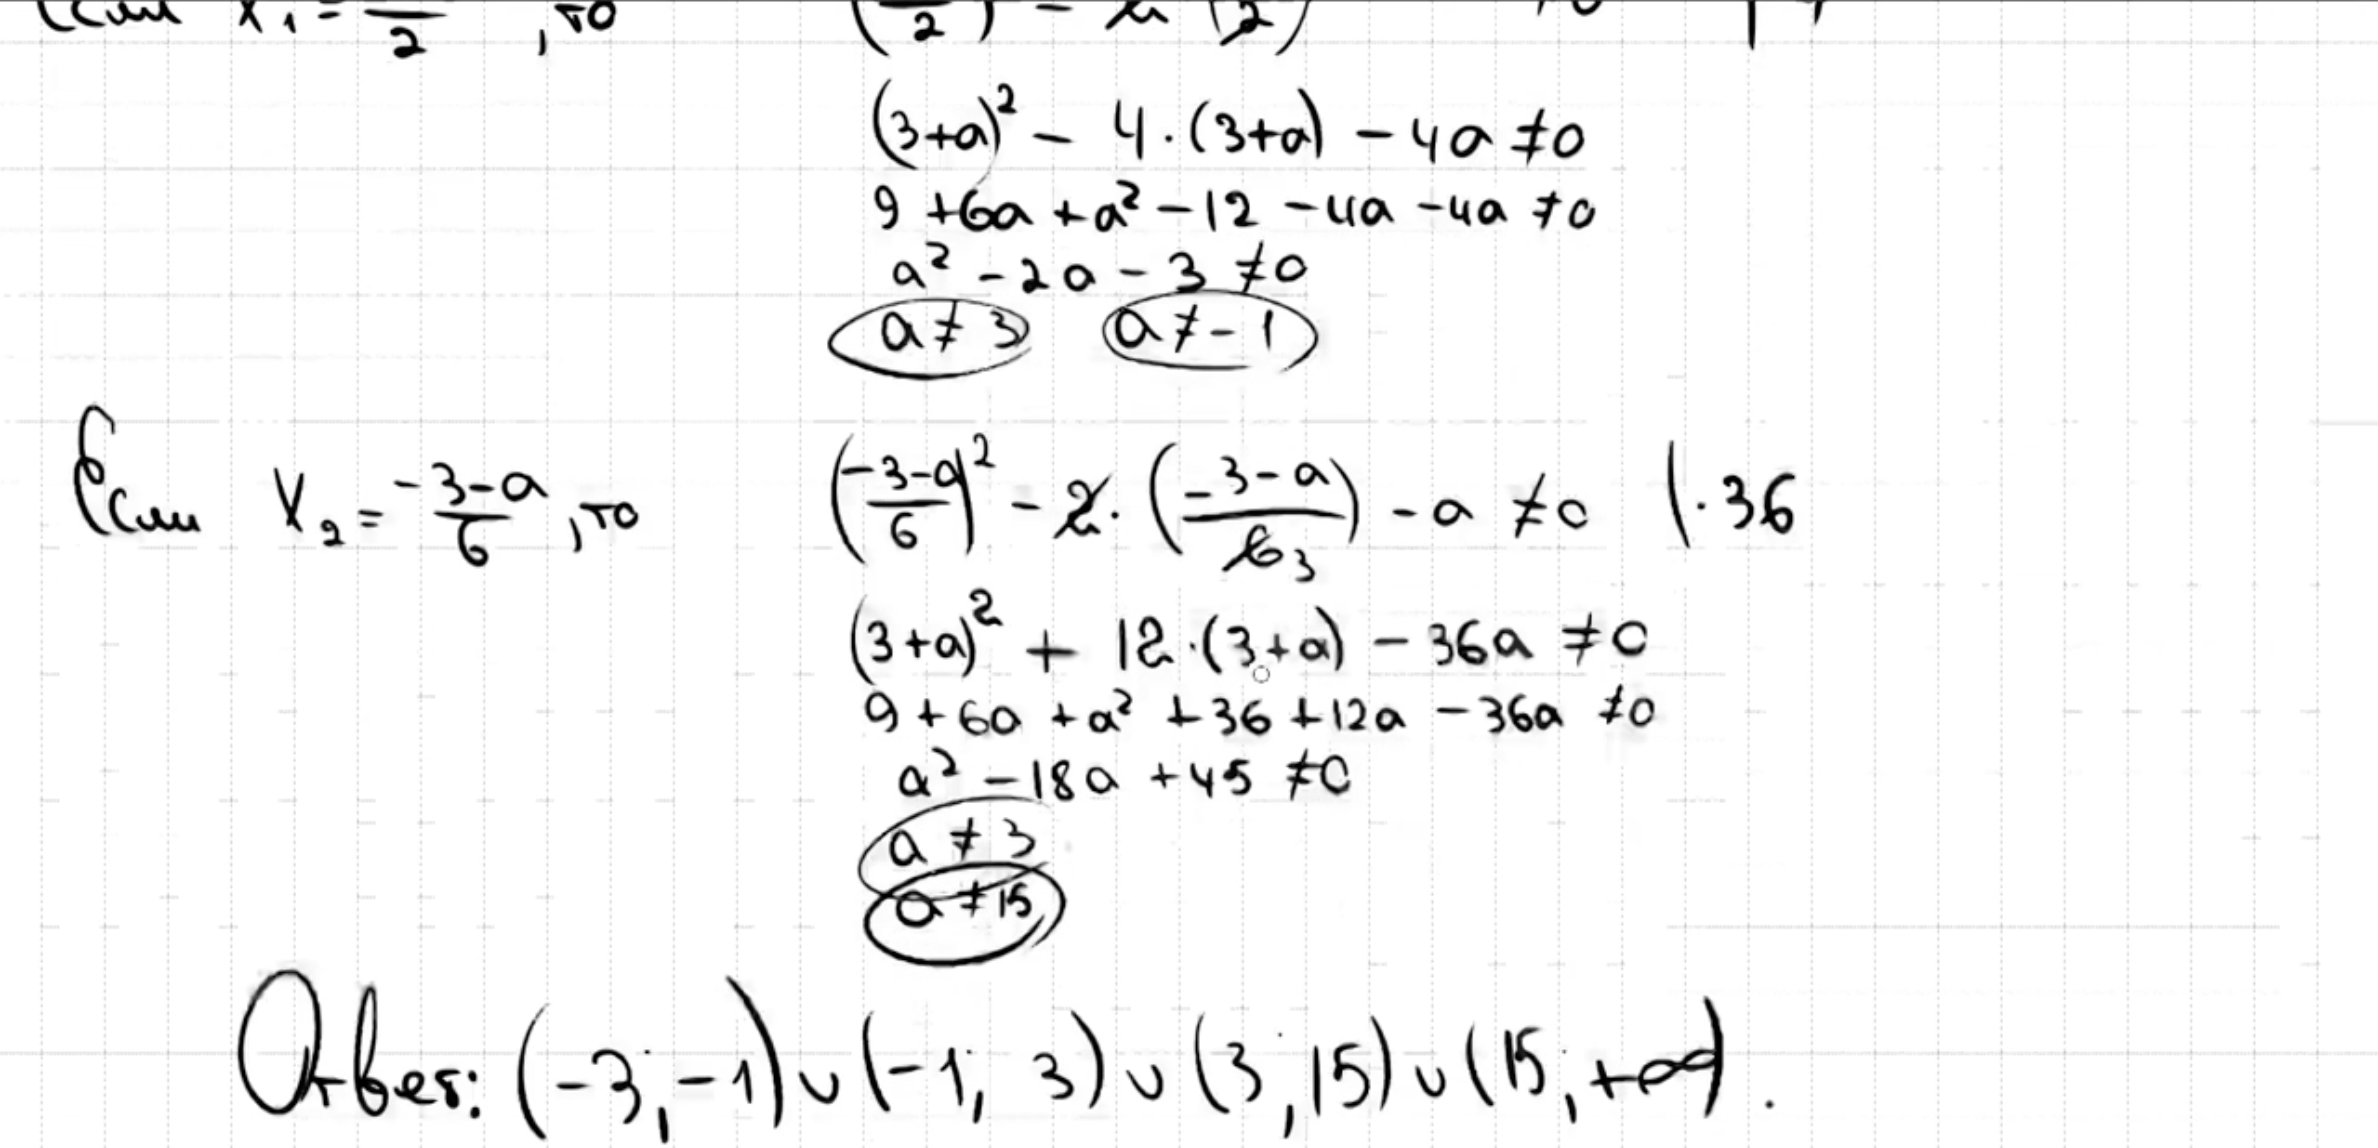 Если x₁ = —/2, то (—/2)² - 2·(—/2)
(3+a)² - 4·(3+a) - 4a ≠0
9 +6a +a² -12 -4a -4a ≠0
a² -2a -3 ≠0
a ≠ 3 a ≠ -1
Если x₂ = (-3-a)/6, то ((-3-a)/6)² - 2·((-3-a)/6 3) - a ≠0 |·36
(3+a)² + 12·(3+a) - 36a ≠0
9 + 6a + a² + 36 + 12a - 36a ≠0
a² - 18a + 45 ≠0
a ≠ 3
a ≠ 15
Ответ: (-3; -1) ∪ (-1; 3) ∪ (3; 15) ∪ (15; +∞).